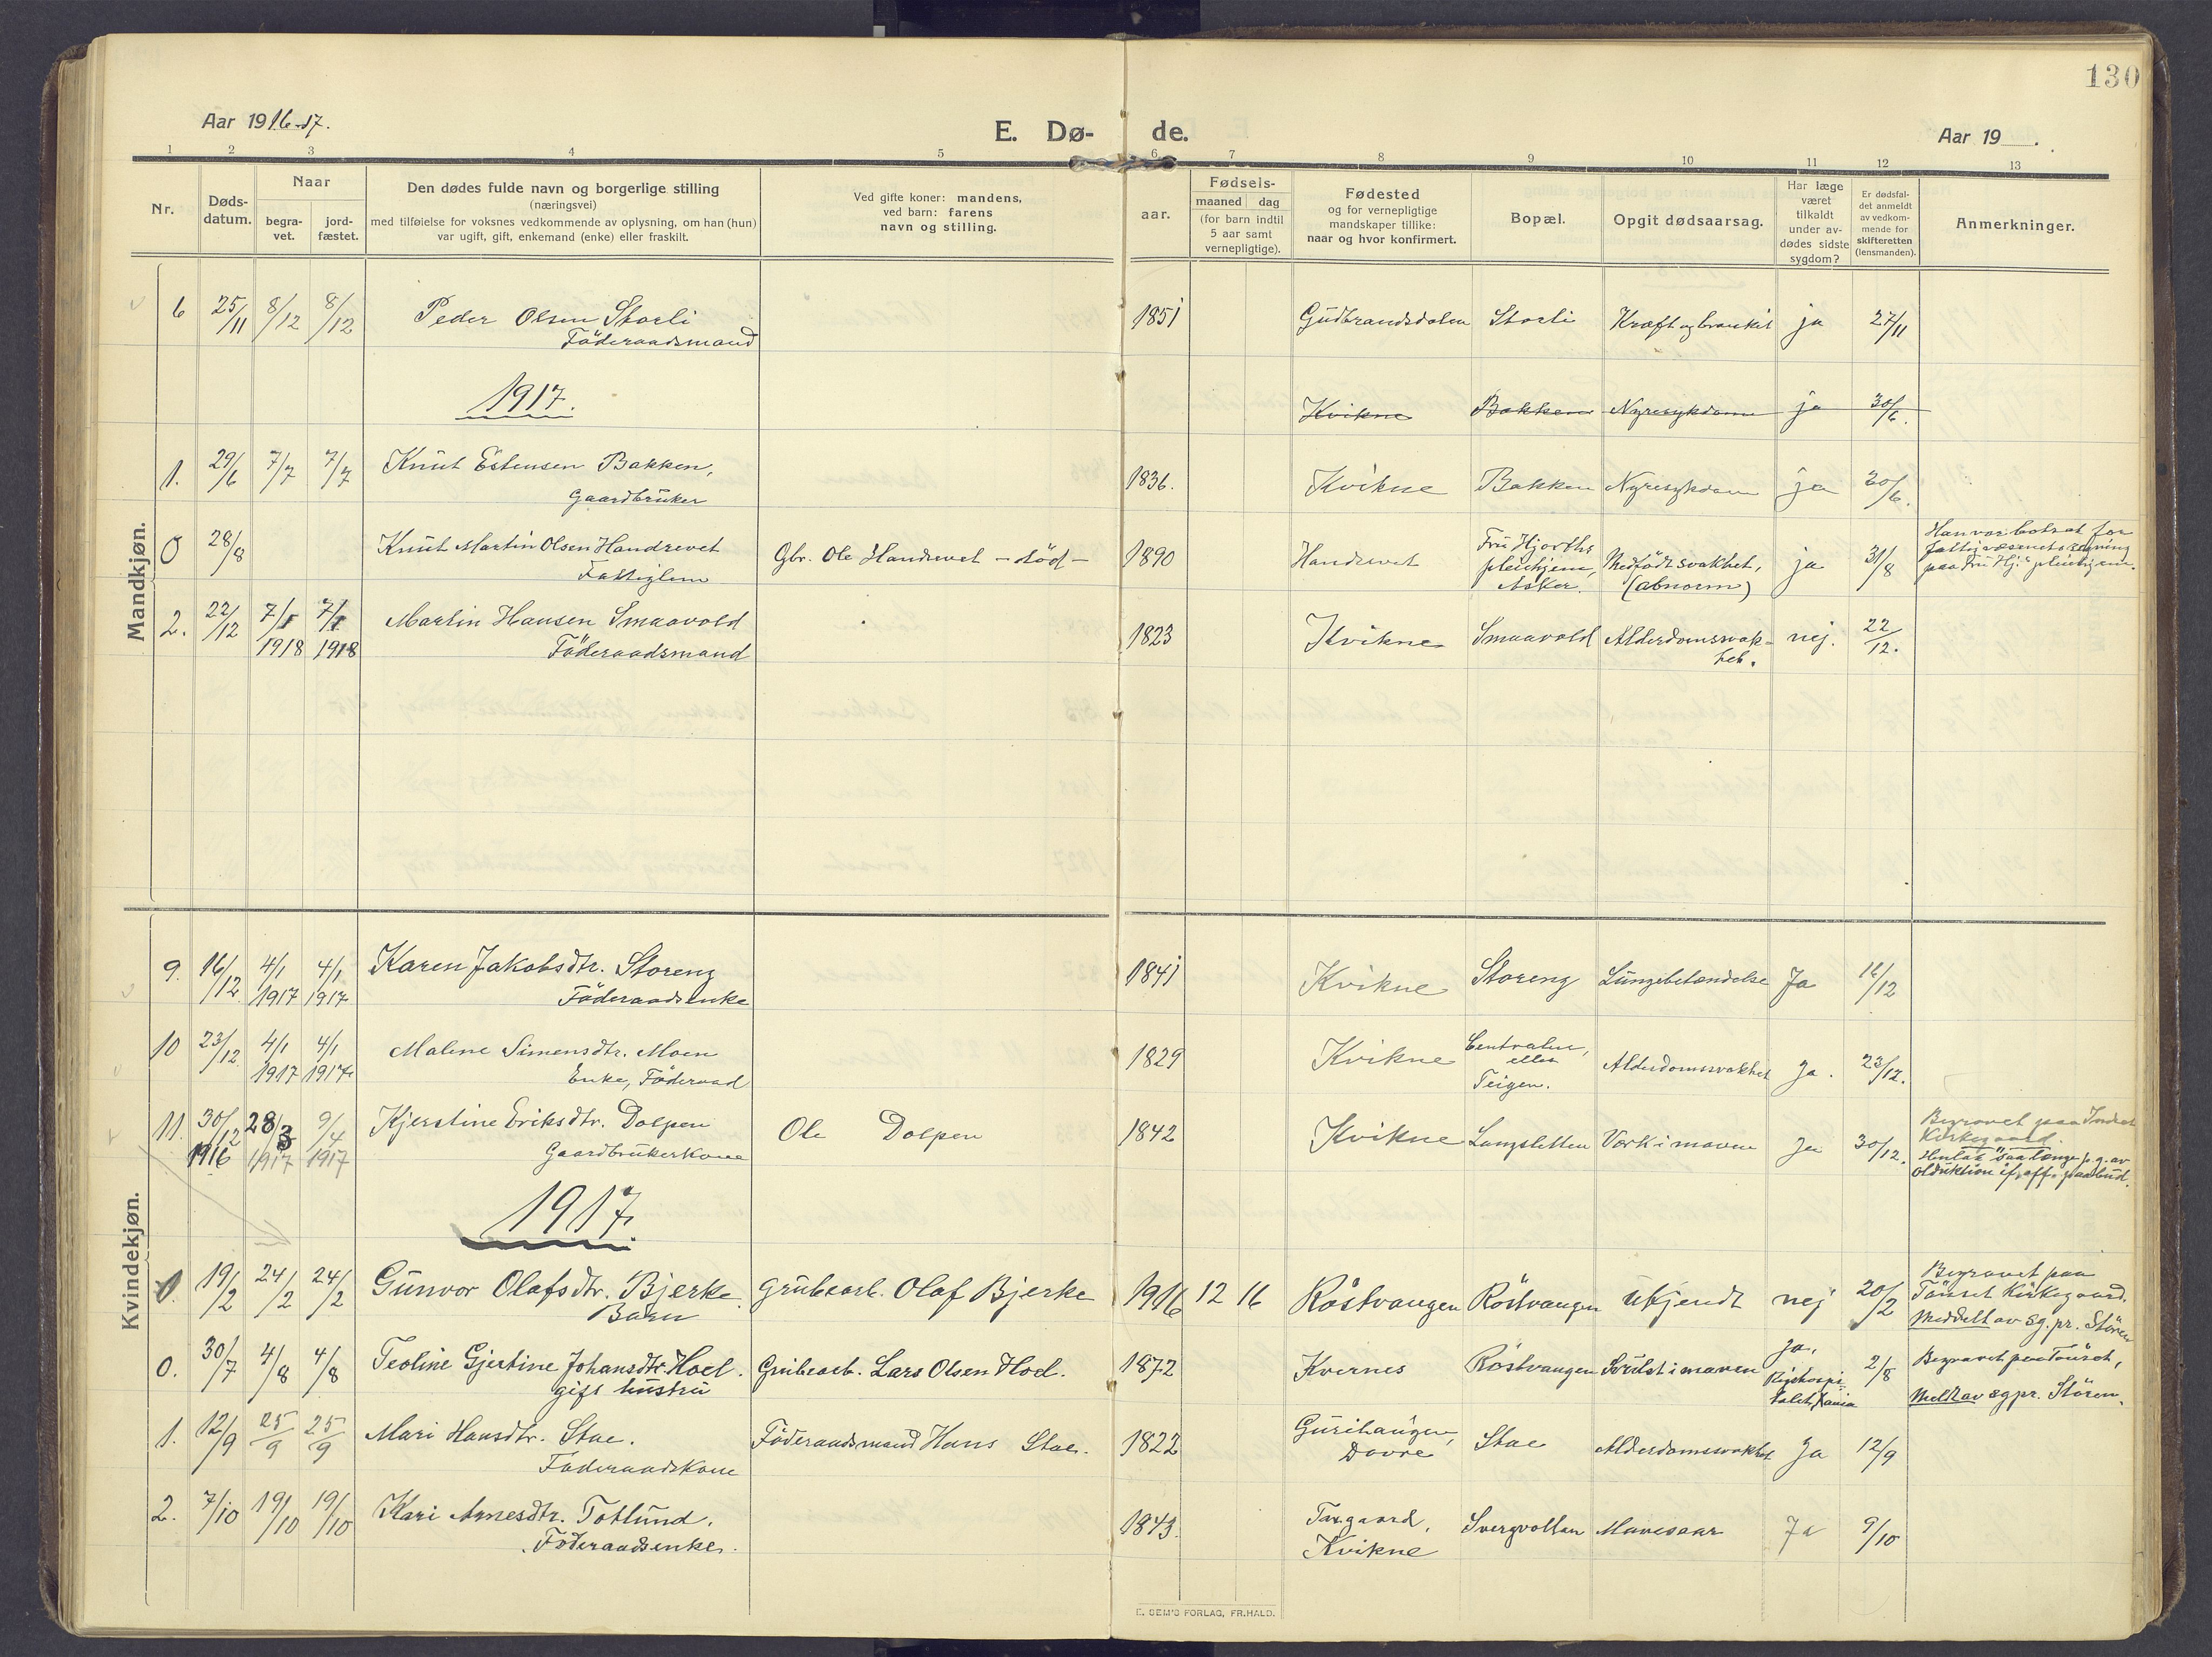 130
Aar 1916-17.
E. Dø- de.
Aar 19 .
1 2 3 4 5 6 7 8 9 10 11 12 13
Nr.
Døds-
datum.
Naar
begra-
vet.
jord-
fæstet.
Den dødes fulde navn og borgerlige stilling
(næringsvei)
med tilføielse for voksnes vedkommende av oplysning, om han (hun)
var ugift, gift, enkemand (enke) eller fraskilt.
Ved gifte koner: mandens,
ved barn: farens
navn og stilling.
aar.
Fødsels-
maaned dag
(for barn indtil
5 aar samt
vernepligtige).
Fødested
og for vernepligtige
mandskaper tillike:
naar og hvor konfirmert.
Bopæl.
Opgit dødsaarsag.
Har læge
været
tilkaldt
under av-
dødes sidste
sygdom?
Er dødsfal-
det anmeldt
av vedkom-
mende for
skifteretten
(lensmanden).
Anmerkninger.
Mandkjøn.
6 25/11 8/12 8/12 Peder Olsen Storli 1851 Gudbrandsdalen Storli Kræft ja 27/11
Föderaadsmand
1917.
Kvikne Bakken Nyresykdom ja 30/6.
1. 29/6 7/7 7/7 Knut Estensen Bakken, 1836. Kvikne Bakken Nyresykdom ja 30/6.
Gaardbruker
0 28/8 Knut Martin Olsen Handrevet Gbr. Ole Handrevet - död - 1890 Handrevet Fru Hjorths
pleiehjem,
Asker.
Medfödt svakhet,
(abnorm)
ja 31/8
Fattiglem
Han var betrat for
fattigvæsenets regning
paa Fru Hj.s pleiehjem.
2. 22/12 7/1 7/1 Martin Hansen Smaavold 1823 Kvikne Smaavold Alderdomssvak-
het.
nej. 22/12.
1918 1918 Föderaadsmand
Kvindekjøn.
9. 16/12 4/1 4/1 Karen Jakobsdtr. Storeng 1841 Kvikne Storeng Lungebetændelse Ja 16/12
1917 1917 Föderaadsenke
10 23/12 4/1 4/1 Malene Simensdtr. Moen 1829 Kvikne Centralen,
eller
Teigen.
Alderdomssvakhet Ja. 23/12.
1917 1917 Enke, Föderaad
11. 30/12 28/3 9/4 Kjerstine Eriksdtr. Dolpen Ole Dolpen 1842 Kvikne Langsletten Værk i maven Ja 30/12.
1916 1917 1917 Gaardbrukerkone
Begravet paa Indset
Kirkegaard.
Henlaa saa længe p.g. av
obduktion if. off. paabud.
1917.
0. 19/2 24/2 24/2 Gunvor Olafsdtr. Bjerke Grubearb. Olaf Bjerke 1916 12 16 Röstvangen Röstvangen Ukjendt nej 20/2
Barn
Begravet paa
Tönset Kirkegaard.
Meddelt av sg.pr. Stören
0. 30/7 4/8 4/8 Teoline Gjertine Johansdtr. Hoel. Grubearb. Lars Olsen Hoel. 1872 Kvernes Röstvangen Svulst i maven Ja,
Rigshospi-
talet, Kania
2/8
gift hustru
Begravet paa Tönset,
Meldt av sgpr. Stören.
1. 12/9 25/9 25/9 Mari Hansdtr. Stae. Föderaadsmand Hans Stae. 1822 Gurihaugen,
Dovre
Stae Alderdomssvakhet Ja 12/9
Föderaadskone
2. 7/10 19/10 19/10 Kari Arnesdtr. Totlund. 1843. Taxgaard,
Kvikne
Svergvollen Mavesaar Ja 9/10
Föderaadsenke.
E. SEM'S FORLAG, FR.HALD.